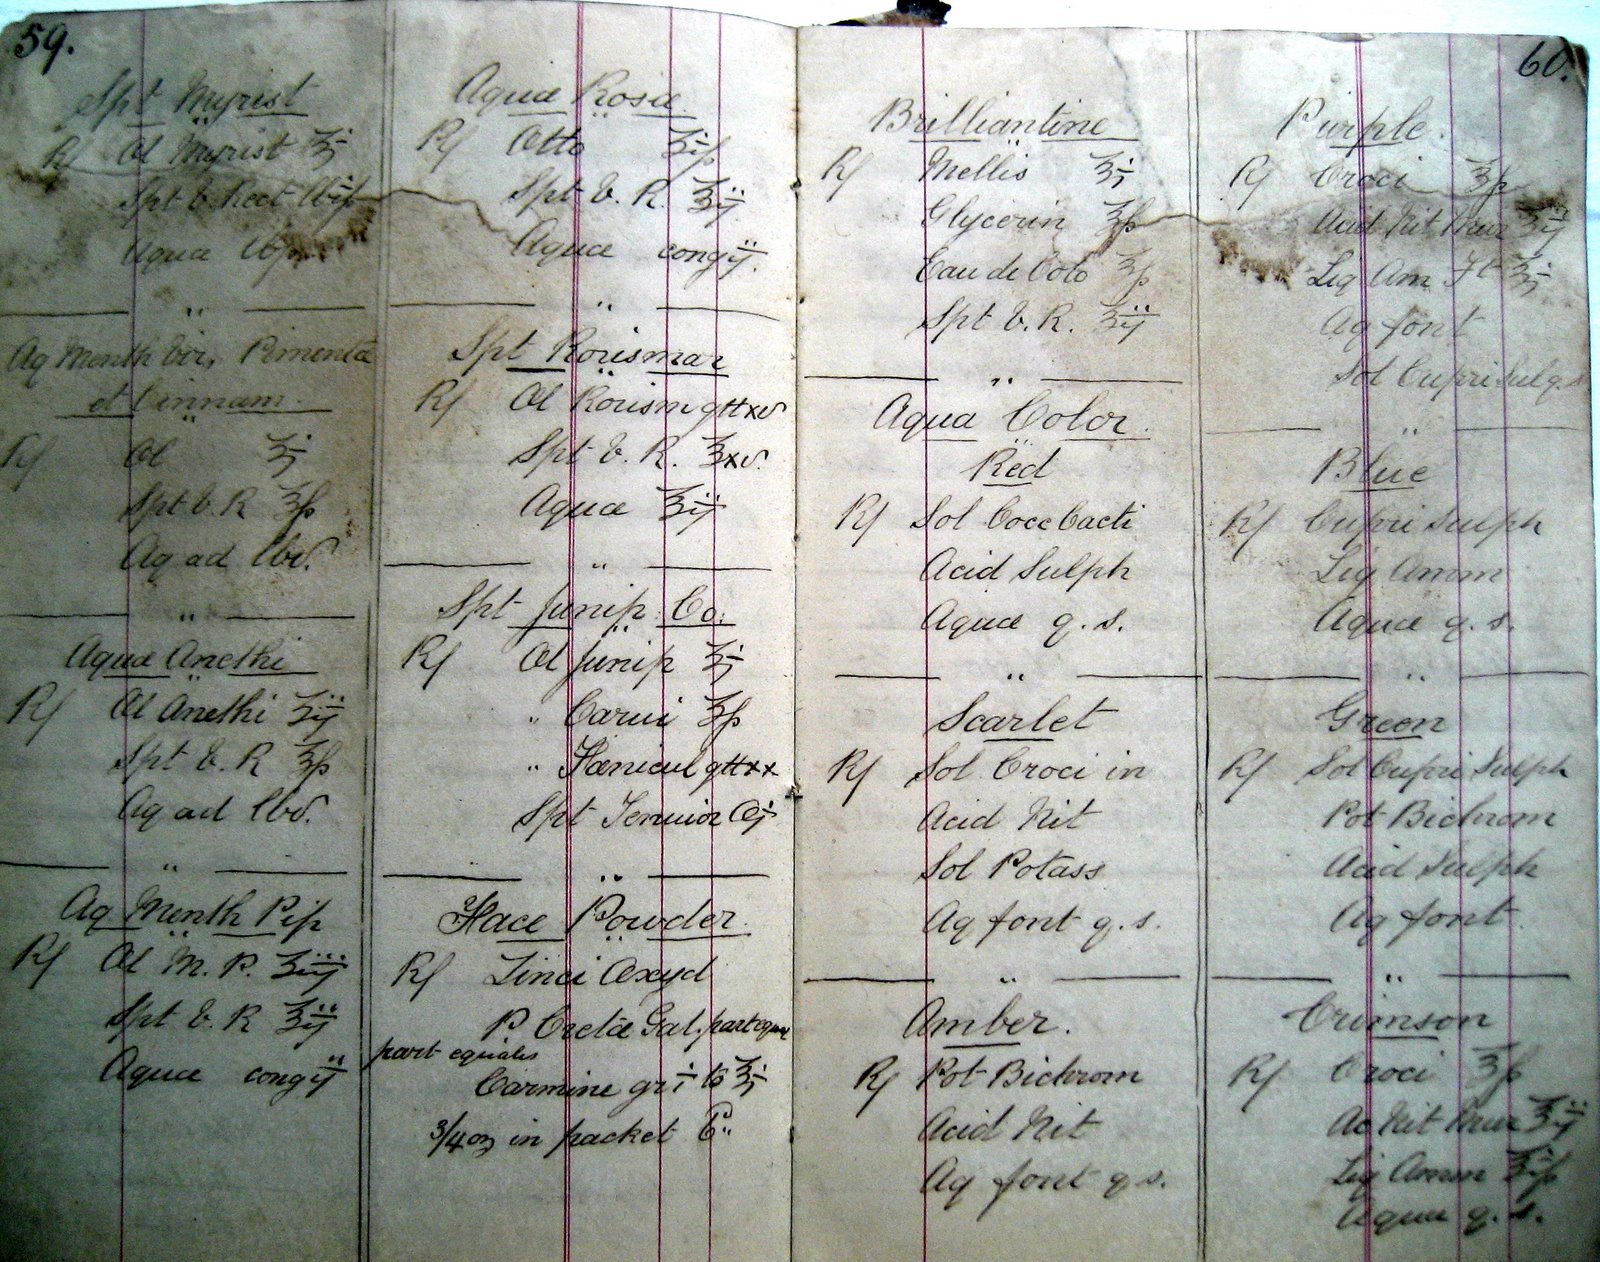 59.
Spt Myrist
Rx Ol Myrist ʒj
Spt V. Rect lbiß
Aqua lbß
Aq Menth Vir, Pimentæ
et Cinnam.
Rx Ol ʒj
Spt V. R ℥ß
Aq ad lbv.
Aqua Anethi
Rx Ol Anethi ʒij
Spt V. R ℥ß
Aq ad lbv.
Aq Menth Pip
Rx Ol M. P. ʒiij
Spt V. R ℥ij
Aquæ congij
Aqua Rosæ
Rx Otto ʒiß
Spt V. R. ℥ij
Aquæ congij.
Spt Rorismar
Rx Ol Rorism gttxv
Spt V. R. ʒxv.
Aquæ ℥ij
Spt Junip. Co.
Rx Ol Junip ʒj
" Carui ʒß
" Fœnicul gttxx
Spt Tenuior Oj
Face Powder.
Rx Zinci Oxyd
P Creta Gal. part equa
part equales
Carmine gr i to ℥j
3/4 oz in packet 6"
60.
Brilliantine
Rx Mellis ℥j
Glycerin ℥ß
Eau de Colo ℥ß
Spt V. R. ℥ij
Aqua Color.
Red
Rx Sol Cocc Cacti
Acid Sulph
Aquæ q. s.
Scarlet
Rx Sol Croci in
Acid Nit
Sol Potass
Aq font q. s.
Amber.
Rx Pot Bichrom
Acid Nit
Aq font q s.
Purple.
Rx Croci ʒß
Acid Nit Mur ʒij
Liq Am Ft ℥j
Aq font
Sol Cupri Sul q. s
Blue
Rx Cupri Sulph
Liq Amm
Aquæ q. s.
Green
Rx Sol Cupri Sulph
Pot Bichrom
Acid Sulph
Aq font
Crimson
Rx Croci ʒß
Ac Nit Mur ʒij
Liq Amm ℥iß
Aquæ q. s.